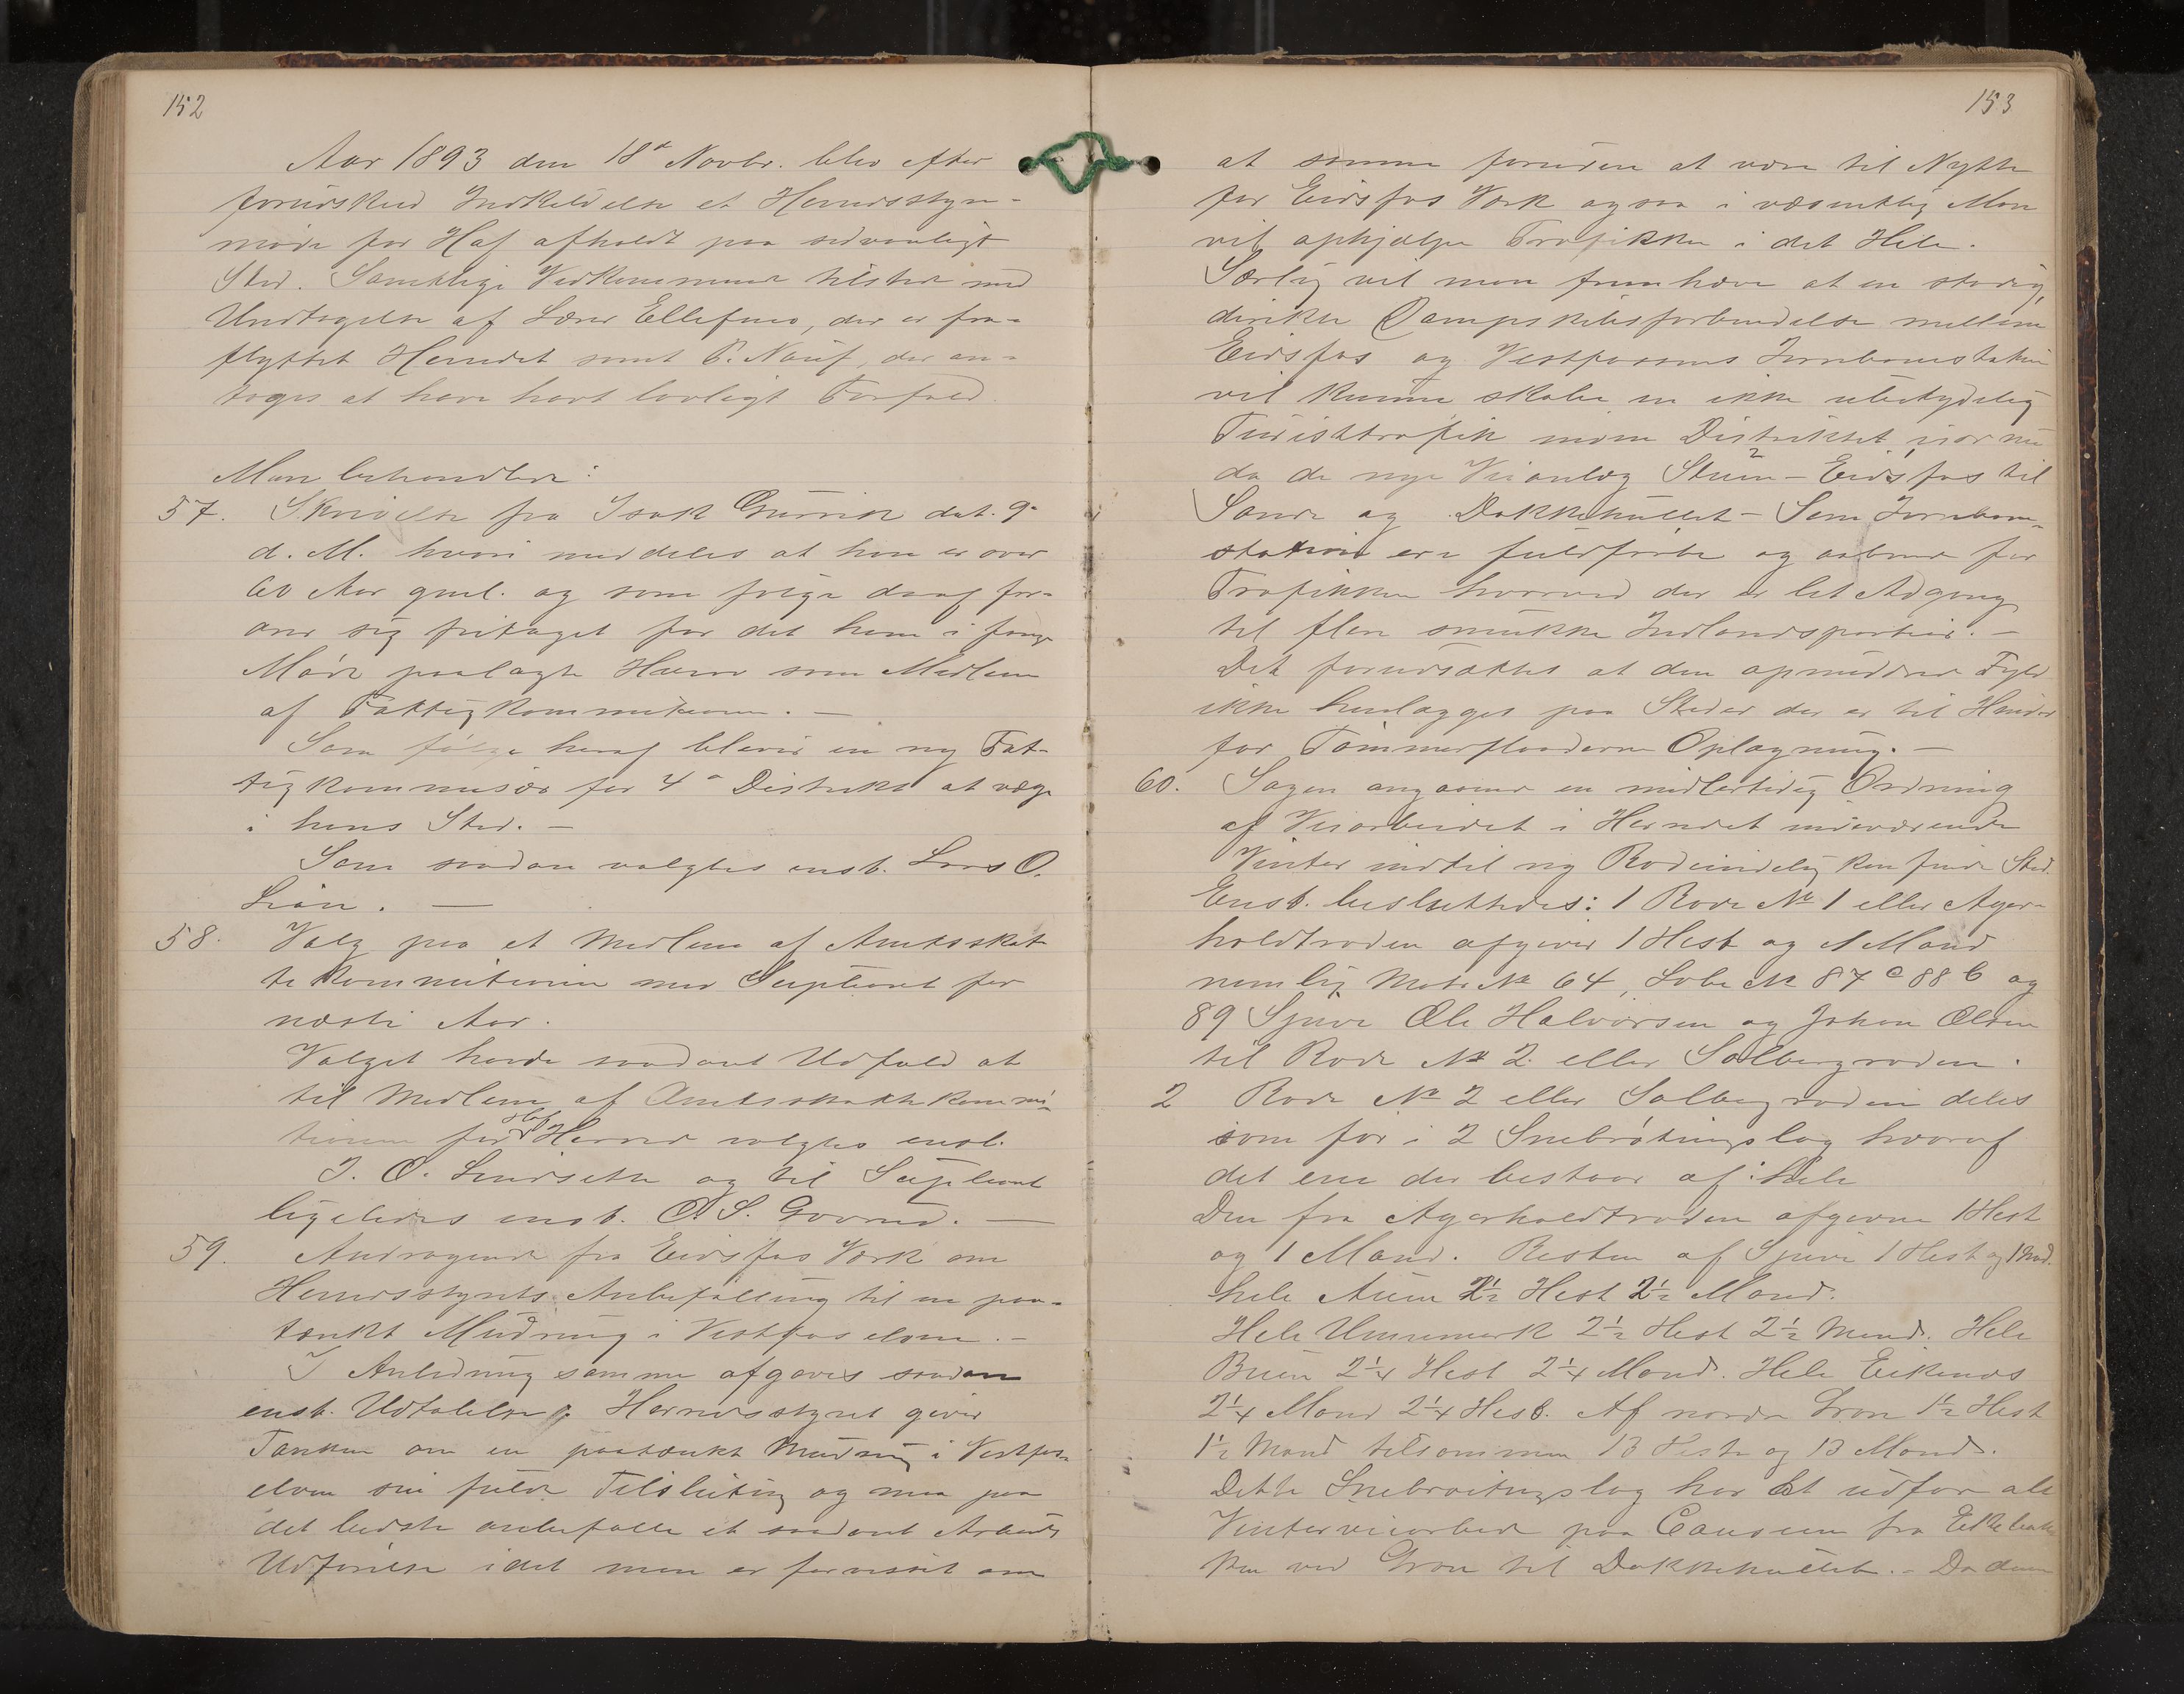 152
Aar 1893 den 18de Novbr. blev efter
forudskeed Indkaldelse et Herredsstyre-
møde for Hof afholdt paa sedvanligt
Sted. Samtlige Vedkommende tilstede med
Undtagelse af Lærer Ellefsen, der er fra-
flyttet Herredet samt P. Nauf, der an-
toges at have havt lovligt Forfald.
Man behandlede:
57. Skrivelse fra Isak Gurrik dat. 9de
d. M. hvori meddeles at han er over
60 Aar gml. og som følge deraf for-
aner sig fritaget for det ham i forge
Møde paalagte Hverv som Medlem
af Fattigkommisionen. —
Som følge heraf bliver en ny Fat-
tigkommisær for 4de Distrikt at vælge
i hans Sted. —
Som saadan valgtes enst. Lars O.
Lian. —
58. Valg paa et Medlem af Amtsskat-
tekommisionen med Supleant for
næste Aar.
Valget havde saadant Udfald at
til Medlem af Amtsskattekommi-
tionen for Hof Herred valgtes enst.
J. O. Lindseth og til Supleant
ligeledes enst. O. S. Goverud. —
59. Andragende fra Eidsfos Værk om
Herredsstyrets Anbefalling til en paa-
tænkt Mudring i Vestfoselven. —
I Anledning samme afgaves saadan
enst. Udtalelse: Herredsstyret giver
Tanken om en paatænkt Mudring i Vestfos-
elven sin fulde Tilslutning og maa paa
det bedste anbefalle et saadant Arbeids
Udførelse idet man er forvisset om
153
at samme foruden at være til Nytte
for Eidsfos Værk ogsaa i væsentlig Mon
vil ophjælpe Trafikken i det Hele.
Særlig vil man fremhæve at en stadig,
direkte Dampskibsforbindelse mellem
Eidsfos og Vestfossens Jernbanestation
vil kunne skabe en ikke ubetydelig
Turisttrafik inom Distriktet, især nu
da de nye Veianlæg Sluen - Eidsfos til
Sande og Dakkehullet - Sem Jernbane-
station ere fuldførte og aabnede for
Trafikken hvorved der er let Adgang
til flere smukke Indlandspartier. —
Det forudsættes at den opmuddrede Fyld
ikke henlægges paa Steder der er til Hinder
for Tømmerflaadernes Oplagning. —
60. Sagen angaaende en midlertidig Ordning
af Veiarbeidet i Herredet indeværende
Vinter indtil ny Rodeindeling kan finde Sted.
Enst. besluttedes: 1 Rode No 1 eller Ager-
holdtroden afgiver 1 Hest og 1 Mand
nemlig Mats No 64, Løbe No 87 c 88 b og
89 Sjuve Ole Halvorsen og Johan Olsen
til Rode No 2 eller Solbergroden.
2 Rode No 2 eller Solbergroden deles
som før i 2 Snebrøitningslag hvoraf
det ene der bestaar af: hele
Den fra Agerholdtroden afgivne 1 Hest
og 1 Mand. Resten af Sjuve 1 Hest og 1 Md.
hele Auen 2½ Hest 2½ Mand.
Hele Ummemerk 2½ Hest 2½ Mand. Hele
Bruen 2¼ Hest 2¼ Mand. Hele Eikenes
2¼ Mand 2¼ Hest. Af nordre Gron 1½ Hest
1½ Mand tilsammen 13 Heste og 13 Mand.
Dette Snebrøitningslag har at udføre alt
Vinterveiarbeide paa fra Eikebak-
ken ved Gron til Dakkehullet. — Da den